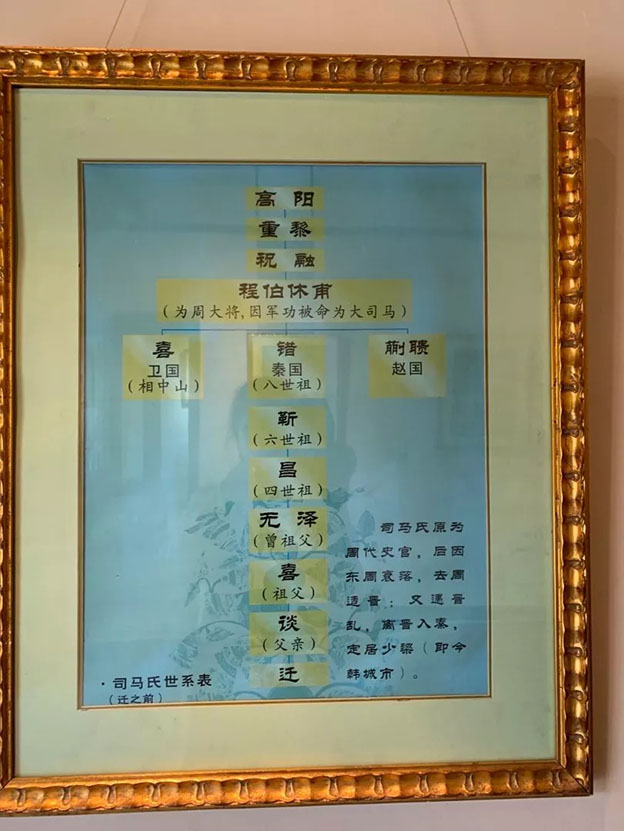 高阳
重黎
祝融
程伯休甫
(为周大将,因军功被命为大司马)
喜
卫国
(相中山)
错
秦国
(八世祖)
蒯聩
赵国
靳
(六世祖)
昌
(四世祖)
无泽
(曾祖父)
喜
(祖父)
谈
(父亲)
迁
司马氏原为
周代史官，后因
东周衰落，去周
适晋；又遇晋
乱，离晋入秦，
定居少梁（即今
韩城市）。
·司马氏世系表
(迁之前)